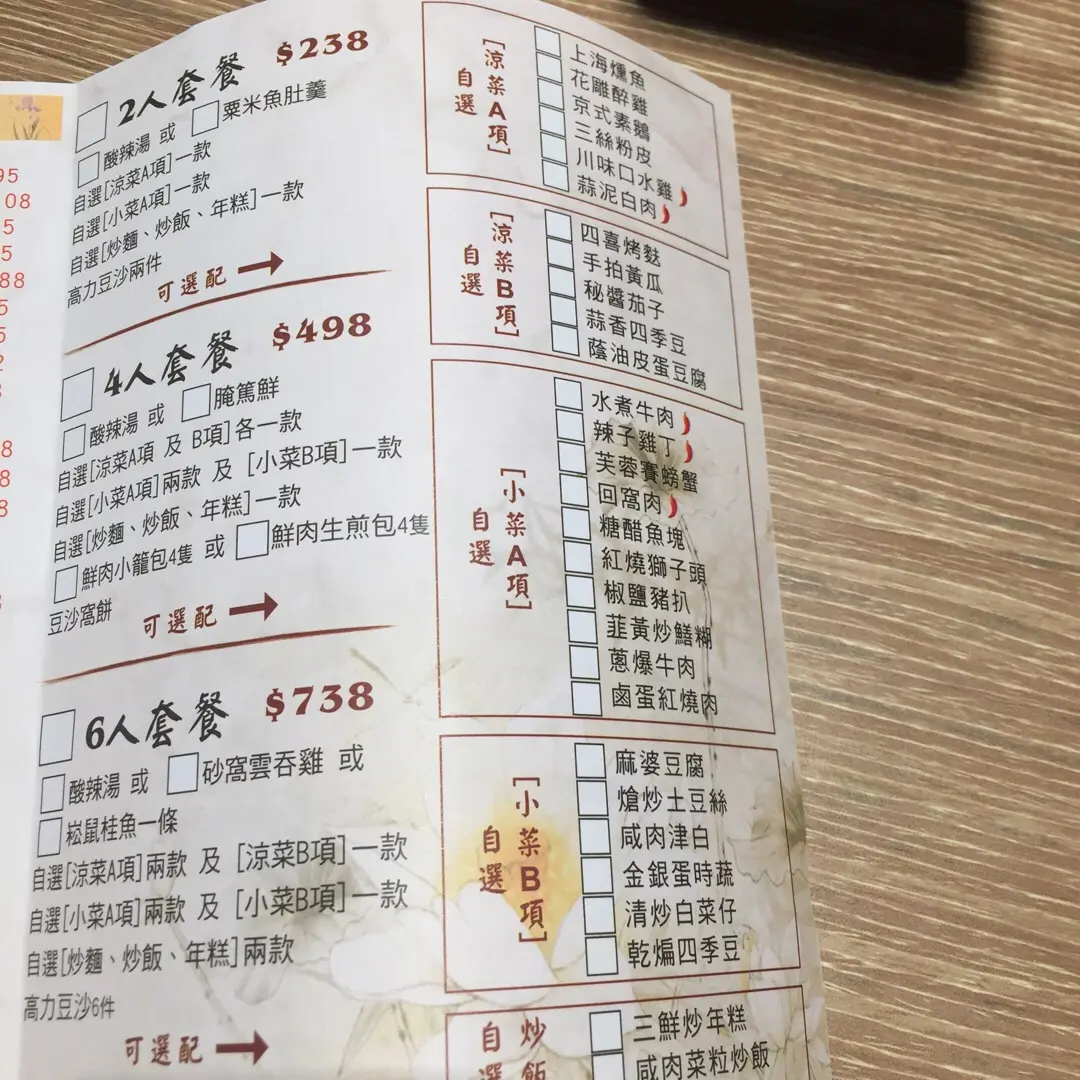 95
08
5
5
88
5
5
2
8
8
8
2人套餐 $238
酸辣湯 或 粟米魚肚羹
自選[涼菜A項]一款
自選[小菜A項]一款
自選[炒麵、炒飯、年糕]一款
高力豆沙兩件
可選配
4人套餐 $498
酸辣湯 或 腌篤鮮
自選[涼菜A項 及 B項]各一款
自選[小菜A項]兩款 及 [小菜B項]一款
自選[炒麵、炒飯、年糕]一款
鮮肉小籠包4隻 或 鮮肉生煎包4隻
豆沙窩餅
可選配
6人套餐 $738
酸辣湯 或 砂窩雲吞雞 或
崧鼠桂魚一條
自選[涼菜A項]兩款 及 [涼菜B項]一款
自選[小菜A項]兩款 及 [小菜B項]一款
自選[炒麵、炒飯、年糕]兩款
高力豆沙6件
可選配
[涼菜A項]
自選
上海燻魚
花雕醉雞
京式素鵝
三絲粉皮
川味口水雞
蒜泥白肉
[涼菜B項]
自選
四喜烤麩
手拍黃瓜
秘醬茄子
蒜香四季豆
蔭油皮蛋豆腐
[小菜A項]
自選
水煮牛肉
辣子雞丁
芙蓉賽螃蟹
回窩肉
糖醋魚塊
紅燒獅子頭
椒鹽豬扒
韮黃炒鱔糊
蔥爆牛肉
鹵蛋紅燒肉
[小菜B項]
自選
麻婆豆腐
熗炒土豆絲
咸肉津白
金銀蛋時蔬
清炒白菜仔
乾煸四季豆
炒飯
自選
三鮮炒年糕
咸肉菜粒炒飯